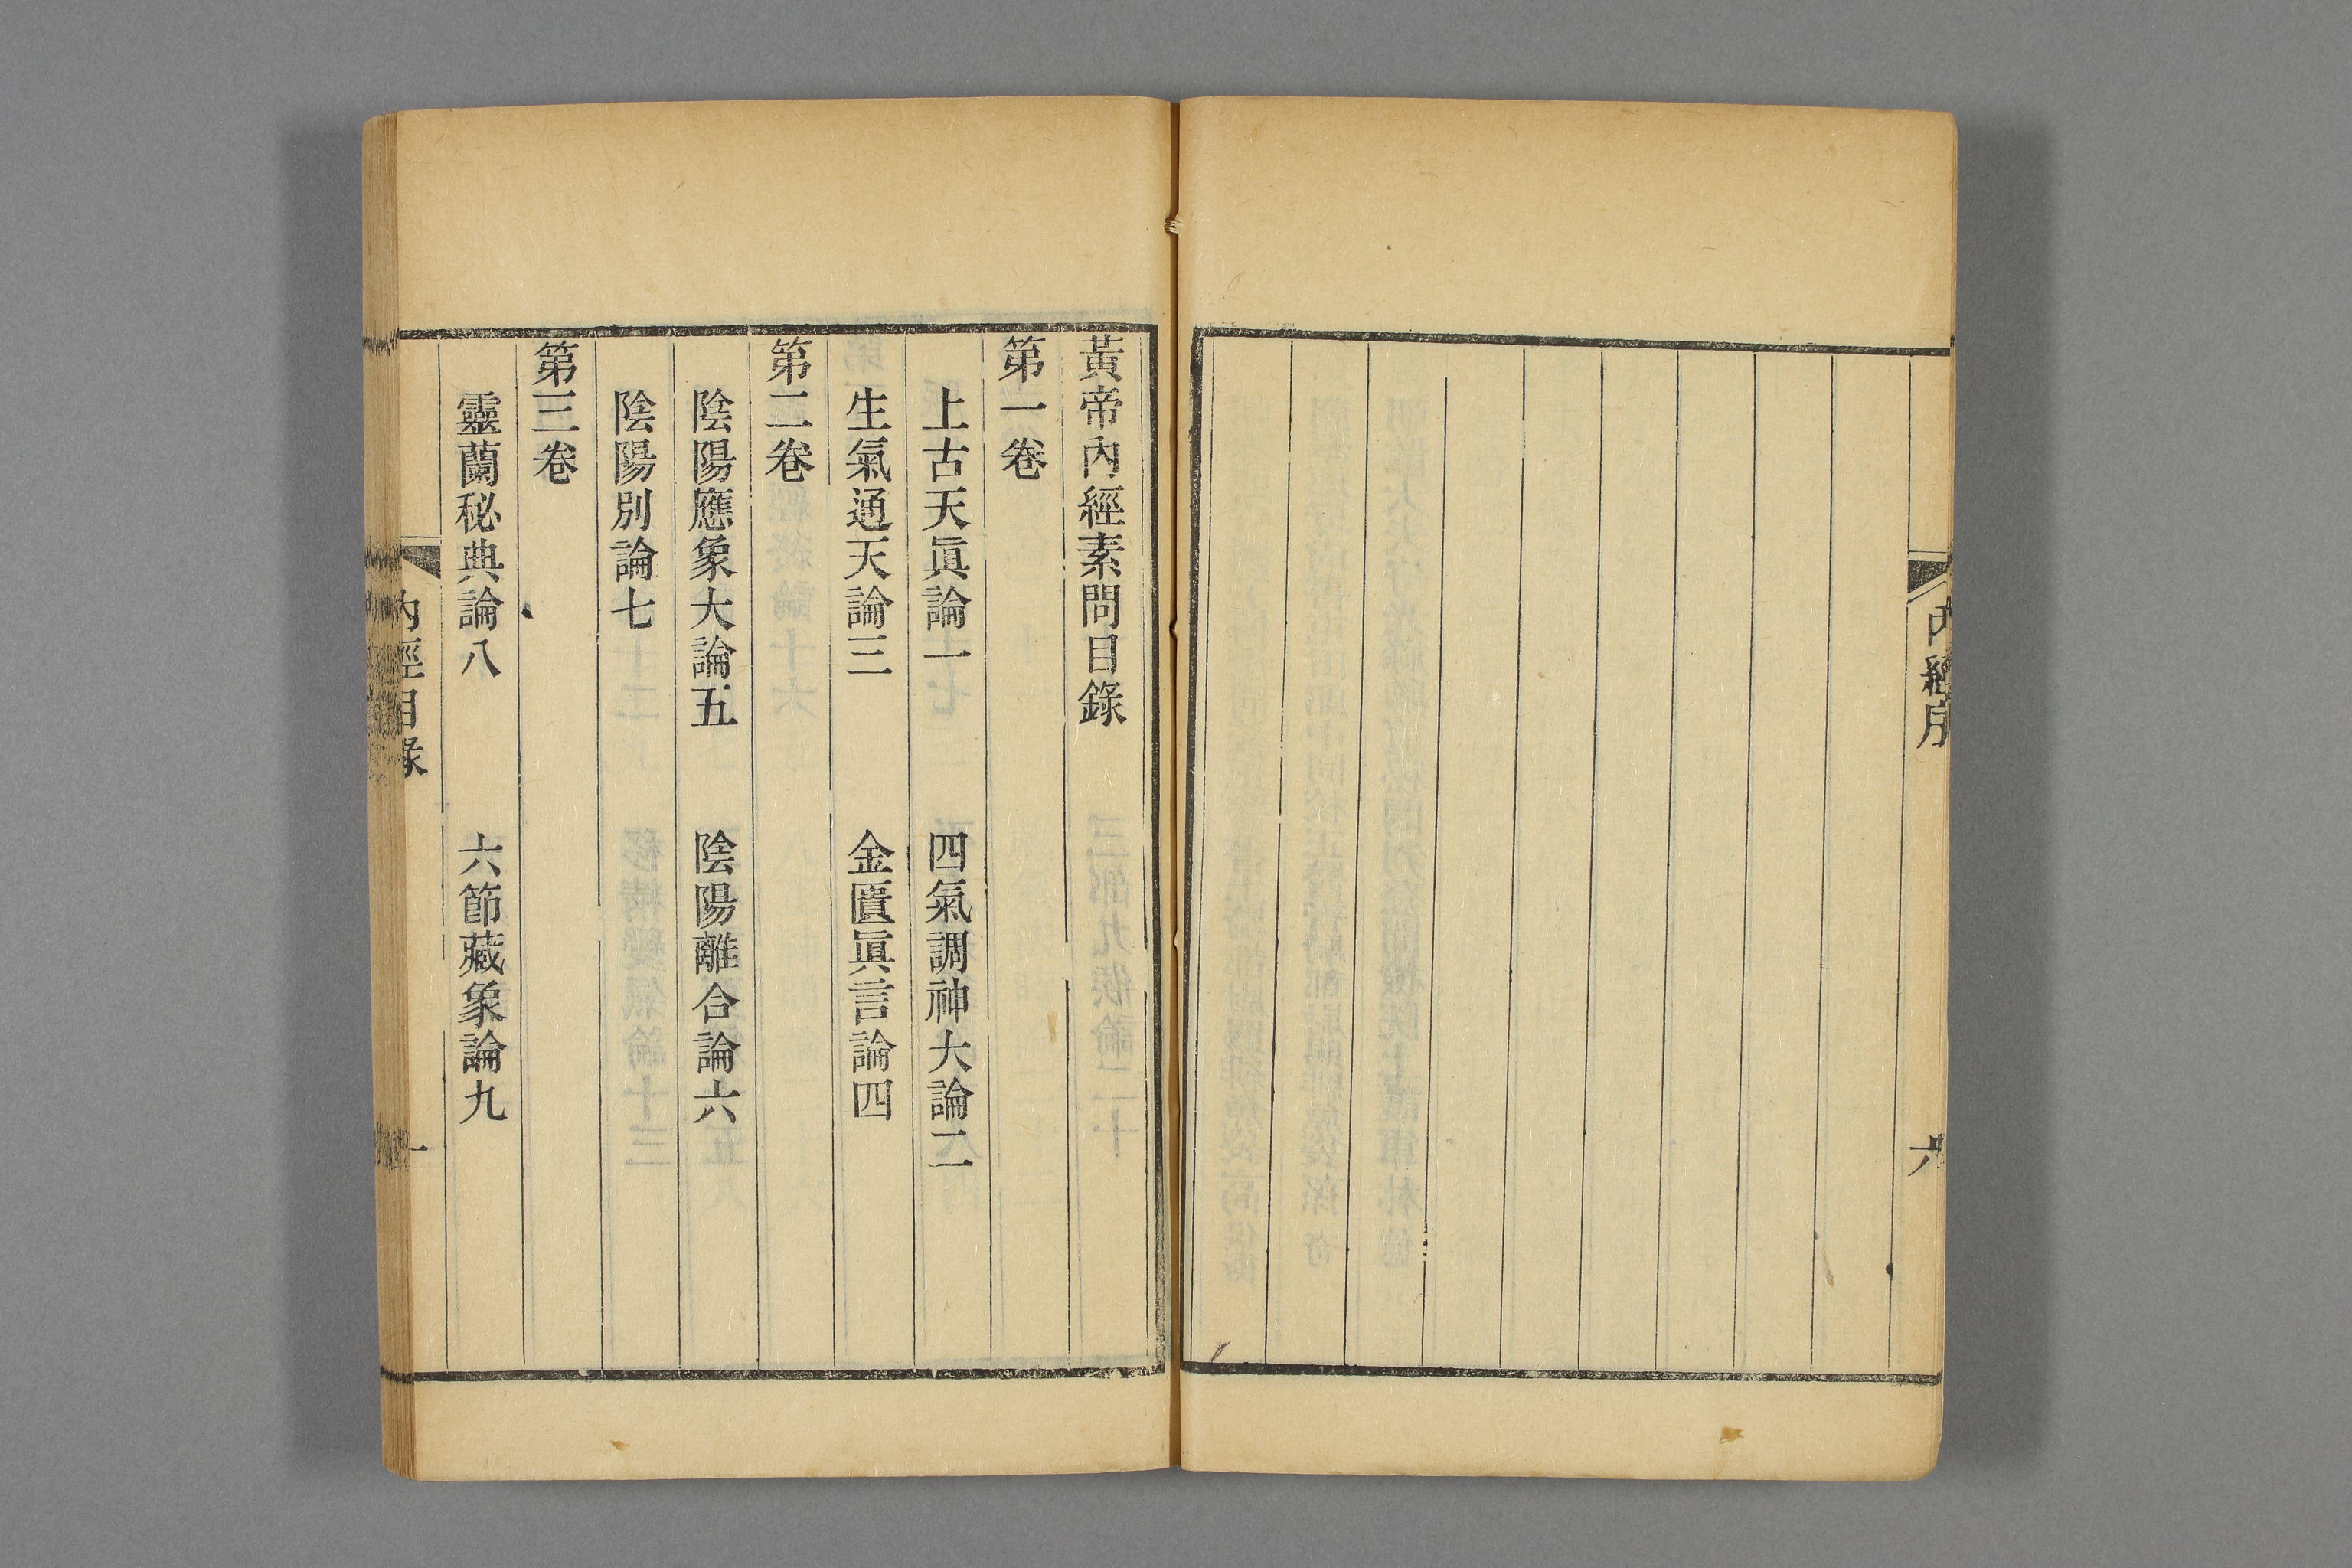 內經序
六
黃帝內經素問目錄
第一卷
上古天眞論一 四氣調神大論二
生氣通天論三 金匱眞言論四
第二卷
陰陽應象大論五 陰陽離合論六
陰陽別論七
第三卷
靈蘭秘典論八 六節藏象論九
內經目錄
一